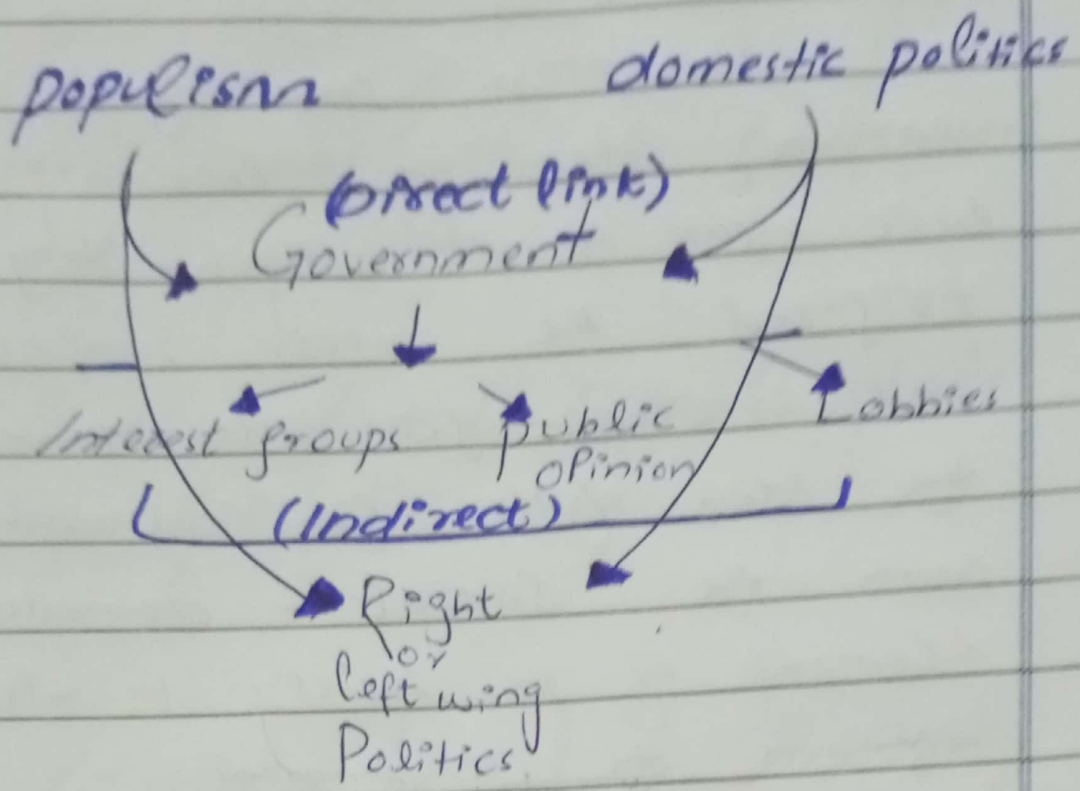 populism domestic politics
(Direct link)
Government
Interest groups public opinion Lobbies
(Indirect)
Right
or
left wing
Politics